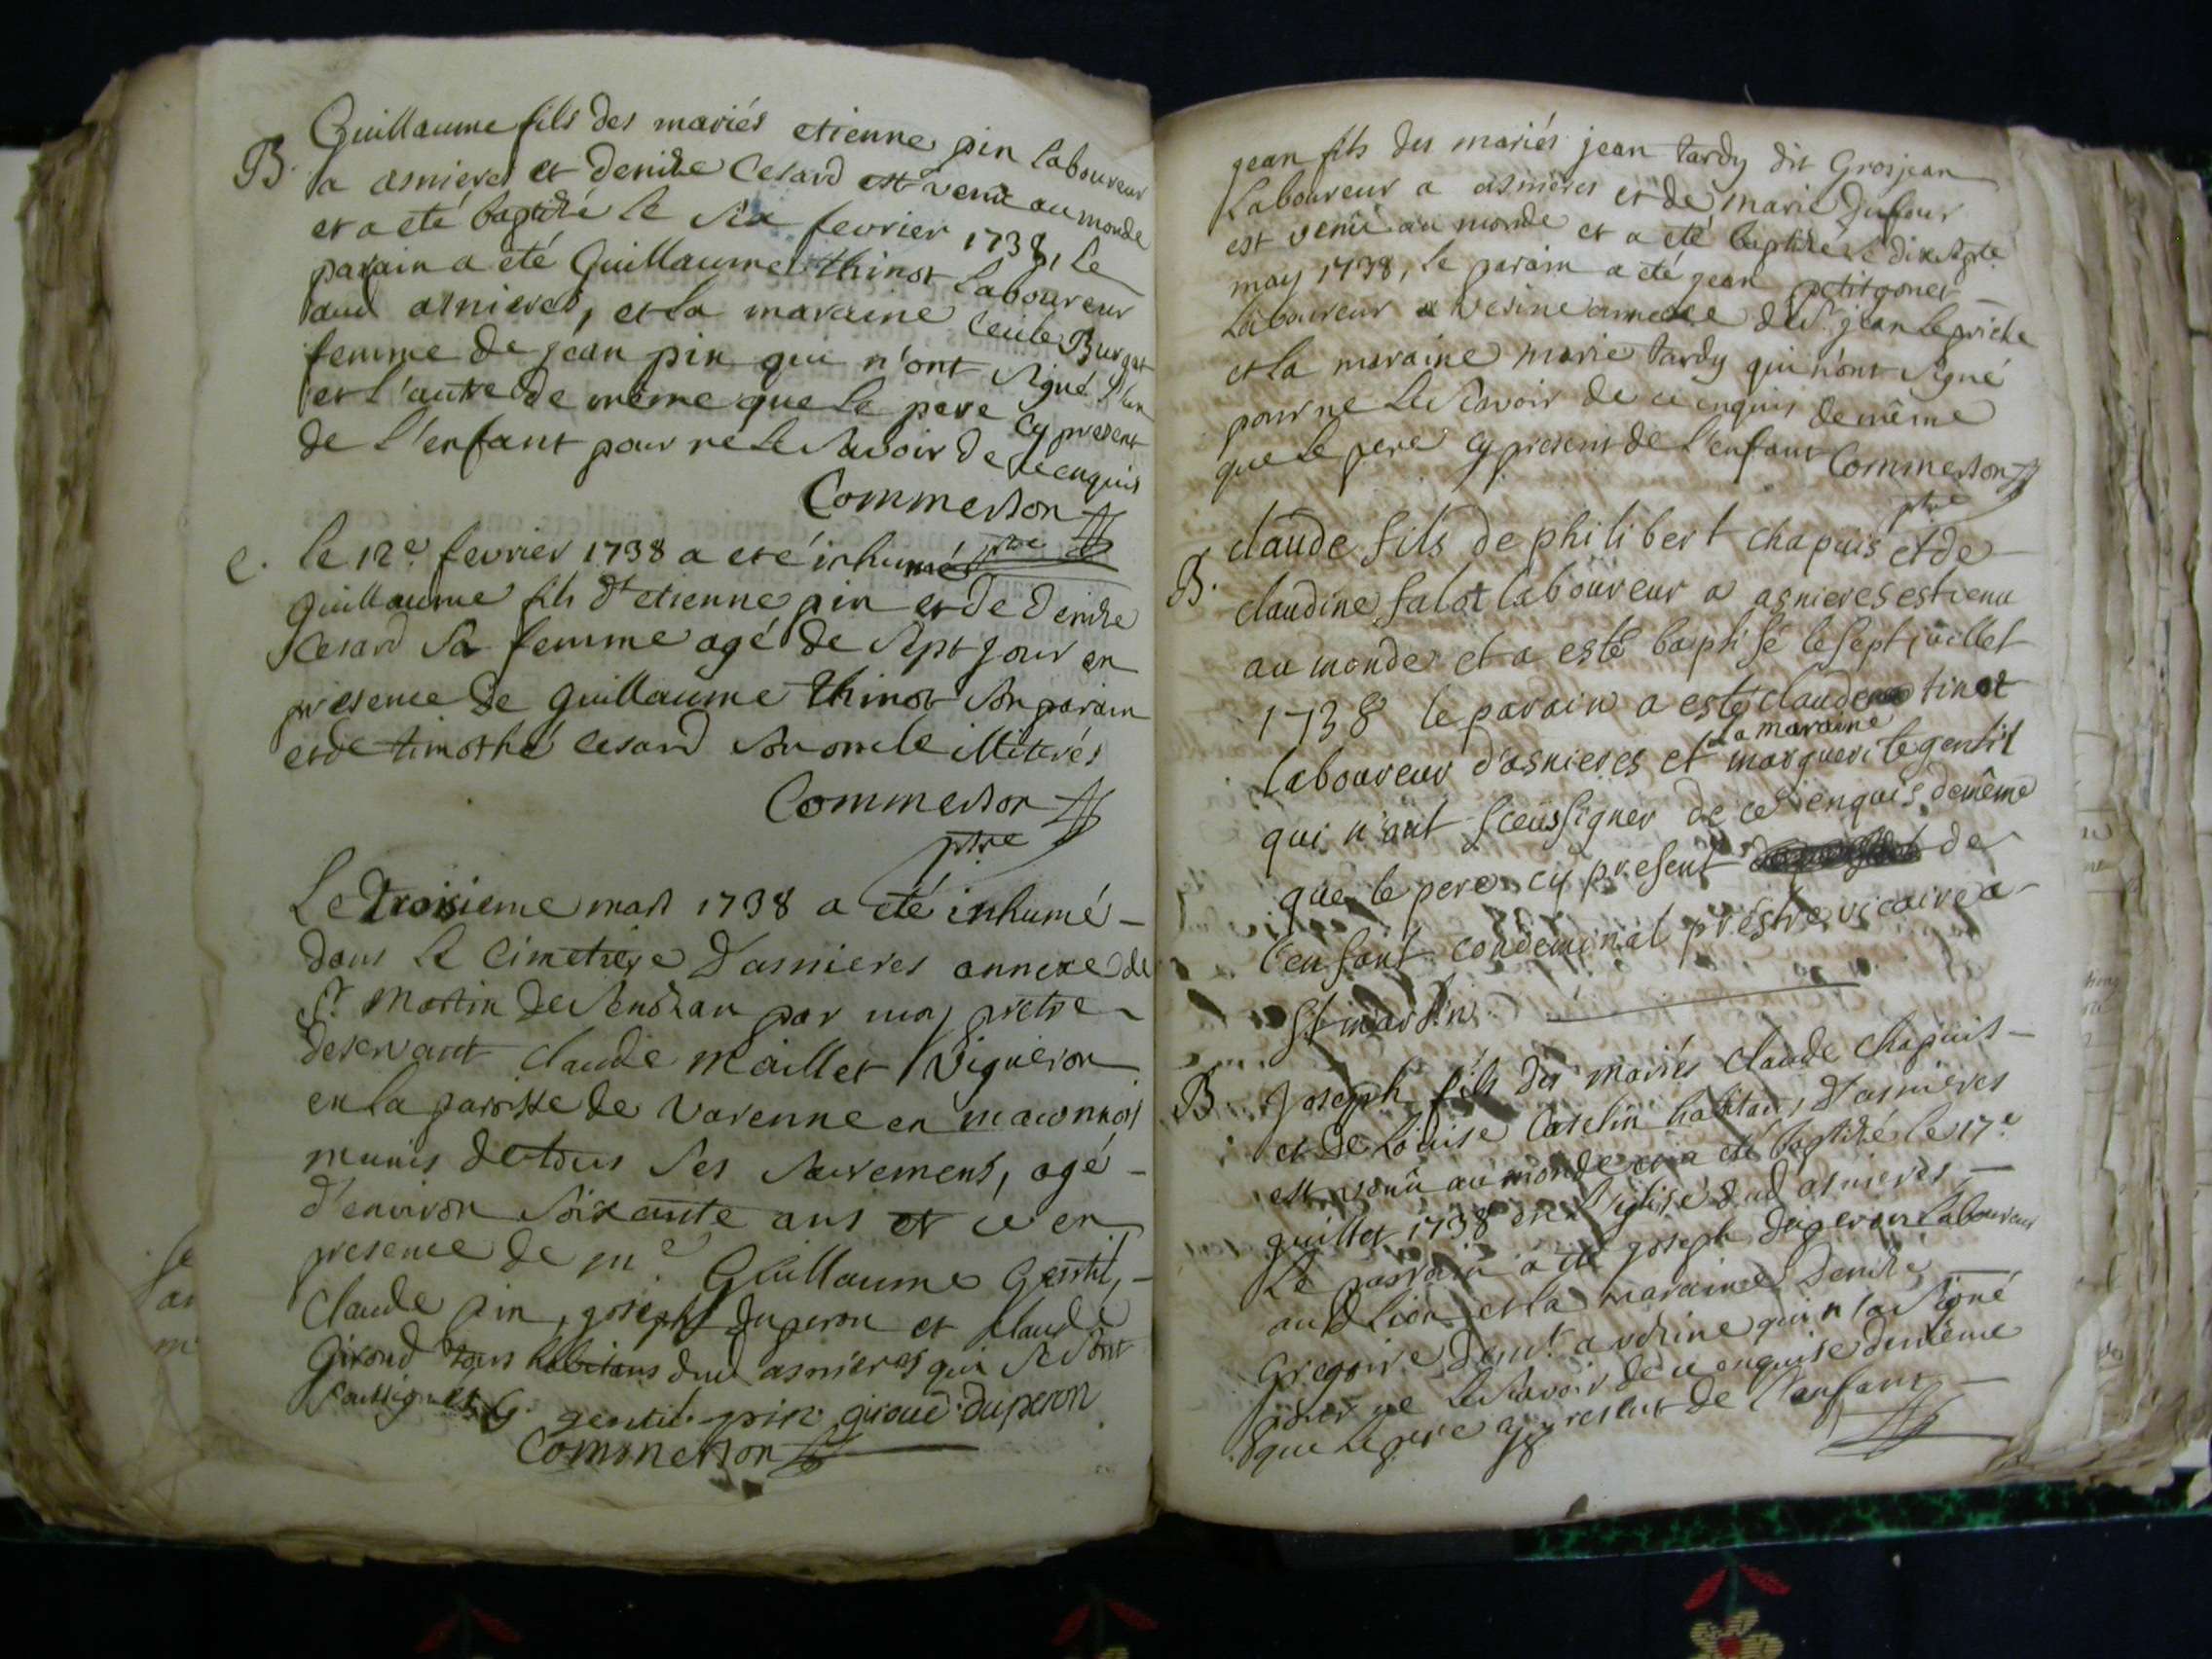 Guillaume fils des mariés etienne pin laboureur
B. a asnieres et denise Cesard est venu au monde
et a eté baptisé le six fevrier 1738, le
parain a eté Guillaume thinot Laboureur
aud asnieres, et la maraine Cecile Burgat
femme de jean pin qui n'ont signé l'un
et l'autre de même que le pere cy present
de l'enfant pour ne le savoir de ce enquis
Commerson
ptre
e. le 12e fevrier 1738 a eté inhumé
Guillaume fils dt etienne pin et de denise
Cesard sa femme agé de sept jour en
presence de Guillaume thinot son parain
et de timothé Cesard son oncle illiterés
Commerson
ptre
Le troisieme mars 1738 a eté inhumé
dans le Cimetiere d'asnieres annexe de
St Martin de Senozan par moy pretre
deservant Claude Maillet Vigneron
en la paroisse de Varenne en maconnois
munis de tous ses sacremens, agé
d'environ soixante ans et ce en
presence de me Guillaume Gentil,
Claude pin, joseph Duperon et Claude
Giroud tous habitans dud asnieres qui se sont
soussignés G. gentil pin giroud duperon
Commerson
jean fils des mariés jean tardy dit Grosjean
Laboureur a asnieres et de marie Dufour
est venu au monde et a eté baptisé le dix sept
may 1738, le parain a eté jean petitgonet
Laboureur a Vesine annexe de St jean le priche
et la maraine marie tardy qui n'ont signé
pour ne le scavoir de ce enquis de même
que le pere cy present de l'enfant Commerson
ptre
B. claude fils de philibert chapuis et de
claudine falot laboureur a asnieres est venu
au monde et a esté baptisé le sept juillet
1738 le parain a esté claude tinot
la maraine
laboureur d'asnieres et margueritte gentil
qui n'ont sceu signer de ce enquis de même
que le pere cy present de
l'enfant condeminal prestre vicaire a
St martin
B. Joseph fils des mariés Claude Chapuis
et de Louise Catelin habitans d'asnieres
est venu au monde et a eté baptisé le 17e
juillet 1738 en l'eglise dud asnieres
Le parain a eté joseph duperon laboureur
aud Lieu et la maraine denise
Gregoire demt a vesine qui n'a signé
pour ne le savoir de ce enquise de même
que le pere cy present de l'enfant